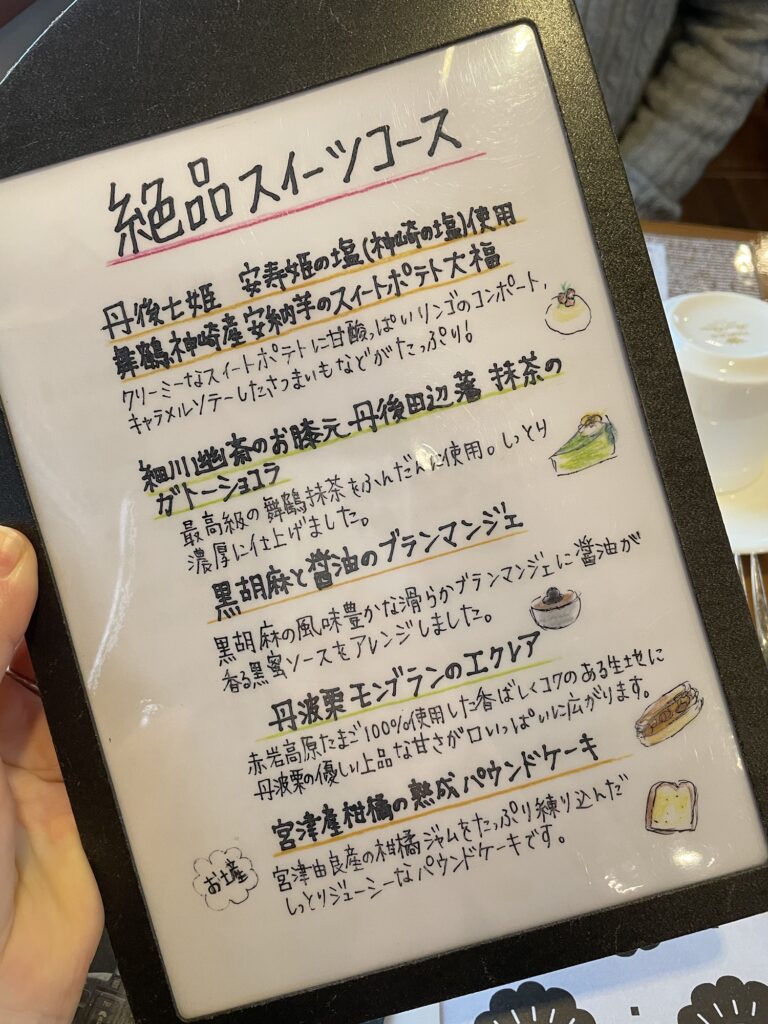 絶品スイーツコース
丹後七姫 安寿姫の塩(神崎の塩)使用
舞鶴神崎産安納芋のスイートポテト大福
クリーミーなスイートポテトに甘酸っぱいリンゴのコンポート,
キャラメルソテーしたさつまいもなどがたっぷり!
細川幽斎のお膝元 丹後田辺藩 抹茶の
ガトーショコラ
最高級の舞鶴抹茶をふんだんに使用。しっとり
濃厚に仕上げました。
黒胡麻と醤油のブランマンジェ
黒胡麻の風味豊かな滑らかブランマンジェに醤油が
香る黒蜜ソースをアレンジしました。
丹波栗モンブランのエクレア
赤岩高原たまご100%使用した香ばしくコクのある生地に
丹波栗の優しい上品な甘さが口いっぱいに広がります。
宮津産柑橘の熟成パウンドケーキ
お土産
宮津由良産の柑橘ジャムをたっぷり練り込んだ
しっとりジューシーなパウンドケーキです。